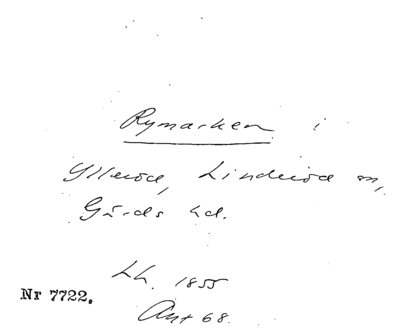 Rymarken i
Ylleröd, Linderöd sn,
Gärds hd.
Lh. 1855
Nr 7722.
Ant 68.